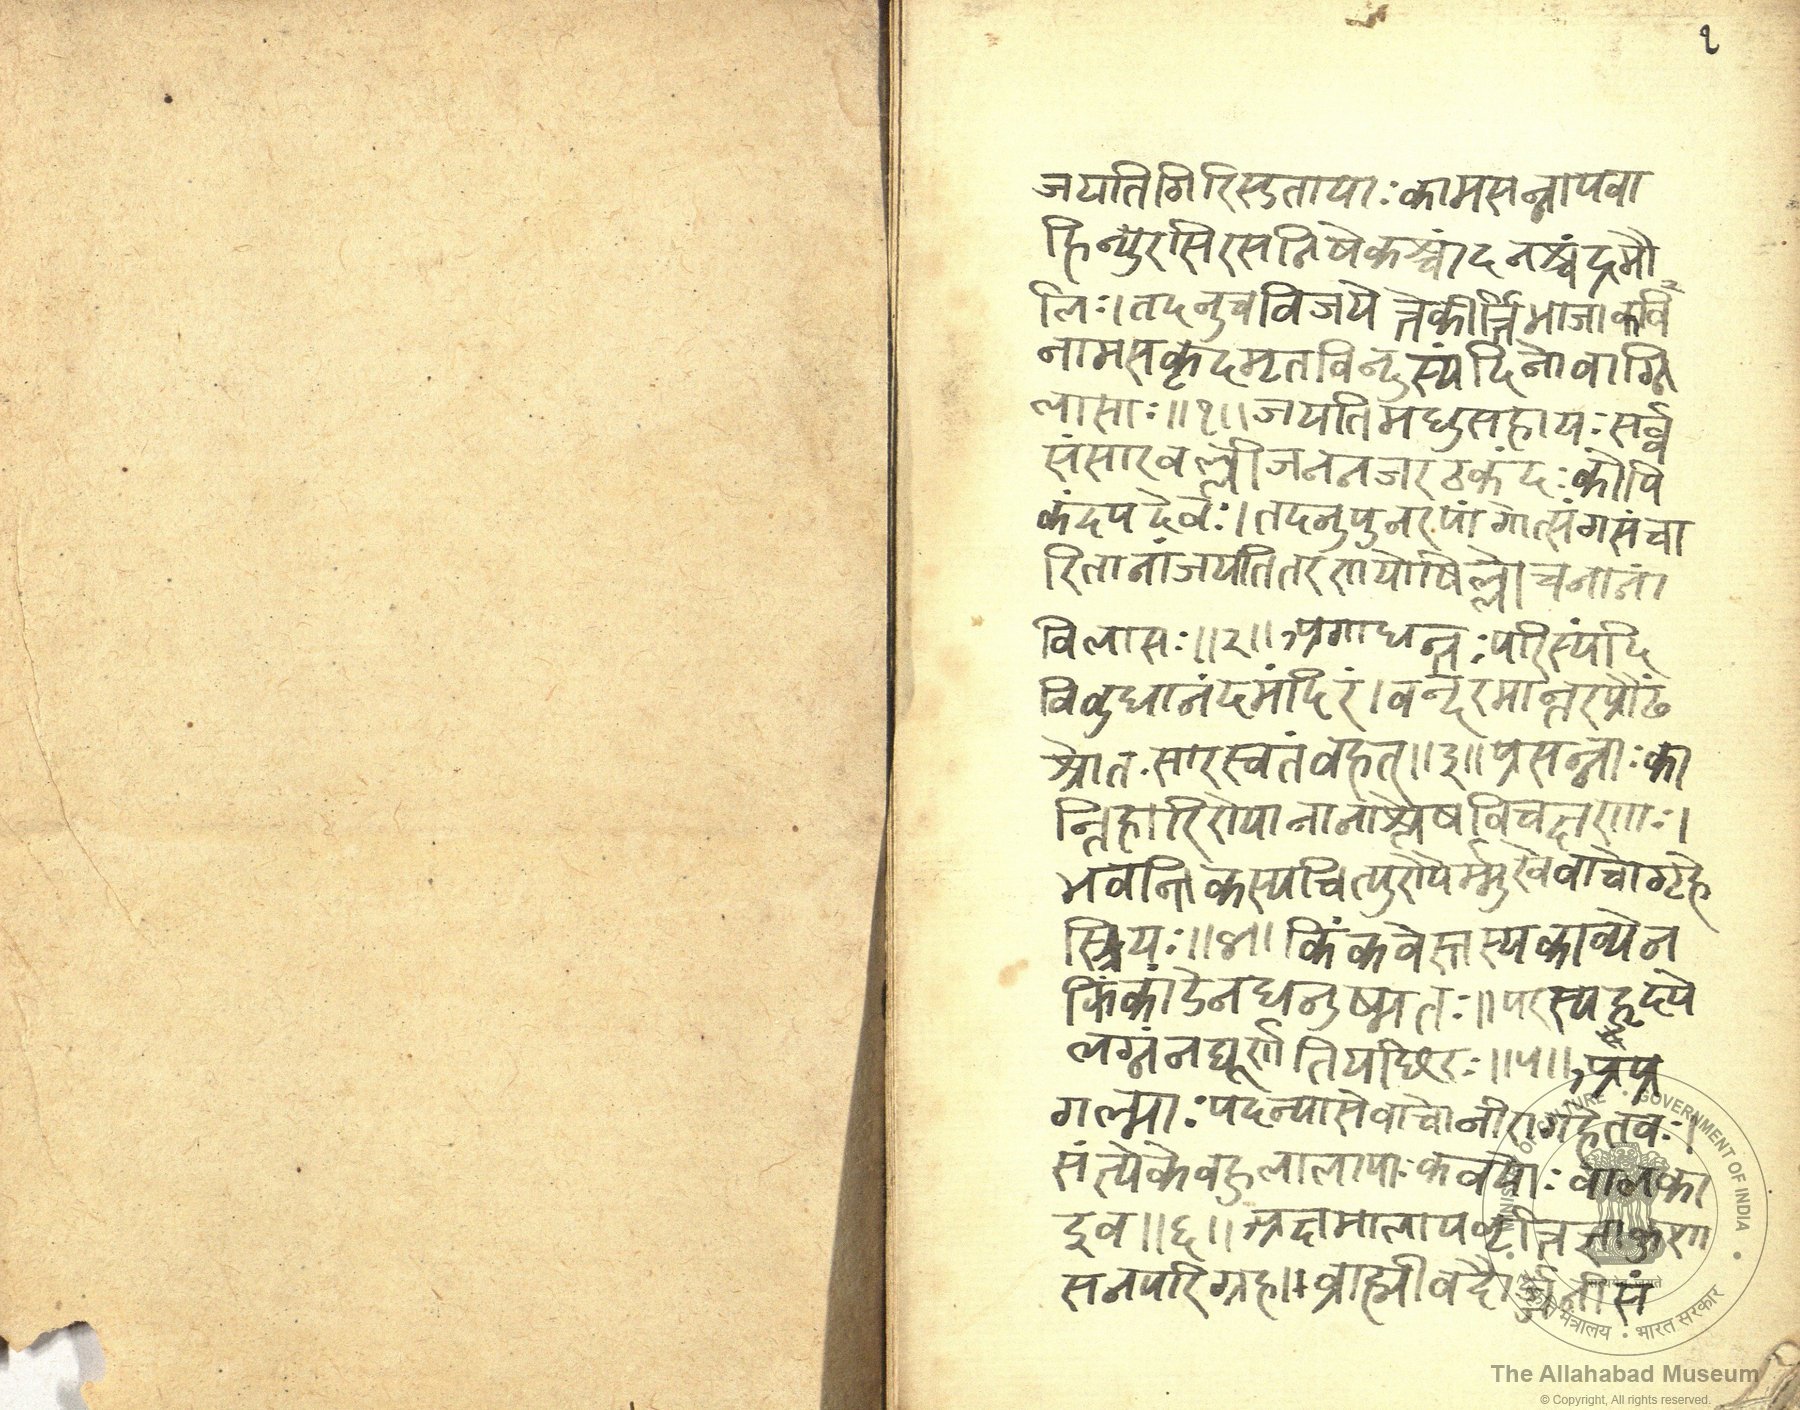 १
जयतिगिरिसुतायाः कामसन्तापवा
हिन्युरसिरसनिषेकश्चांदनश्चंद्रमौ
लिः।तदनुचविजयंत्तेकीर्त्तिभाजांकवी
नामसकृदमृतविन्दुस्यंदिनोवाग्वि
लासाः॥१॥जयतिमधुसहायःसर्व्व
संसारवल्लीजननजरठकंदःकोपि
कंदर्पदेवः।तदनुपुनरपांगोत्संगसंचा
रितानांजयतितरुणयोषिल्लोचनानां
विलासः॥२॥अगाधान्तःपरिस्पंदि
विवुधानंदमंदिरं।वन्देरसान्तरप्रौढं
श्रोतःसारस्वतंवहत्॥३॥प्रसन्नाःका
न्तिहारिण्योनानाश्लेषविचक्षणाः।
भवन्तिकस्यचित्पुण्यैर्म्मुखेवाचोगृहे
स्त्रियः॥४॥किंकवेस्तस्यकाव्येन
किंकांडेनधनुष्मतः॥परस्यहृदये
लग्नंनघूर्णतियच्छिरः॥५॥अप्र
गल्भाःपदन्यासेवाचोनीरागहेतवः।
संत्येकेवहुलालापाःकवयोःवालका
इव॥६॥अक्षमालापवृत्तिज्ञाकुशा
सनपरिग्रहा।व्राह्मीवदौर्जनीसं
MINISTRY OF CULTURE • GOVERNMENT OF INDIA
सत्यमेव जयते
संस्कृति मंत्रालय • भारत सरकार
The Allahabad Museum
© Copyright, All rights reserved.